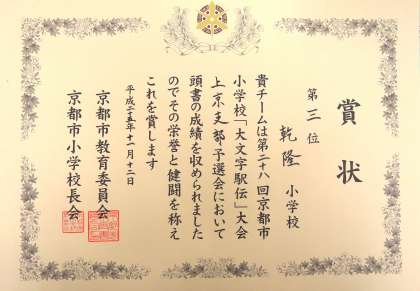 賞状
第三位
乾隆 小学校
貴チームは第二十八回京都市
小学校「大文字駅伝」大会
上京支部予選会において
頭書の成績を収められました
のでその栄誉と健闘を称え
これを賞します
平成二五年十一月十二日
京都市教育委員会
京都市小学校長会